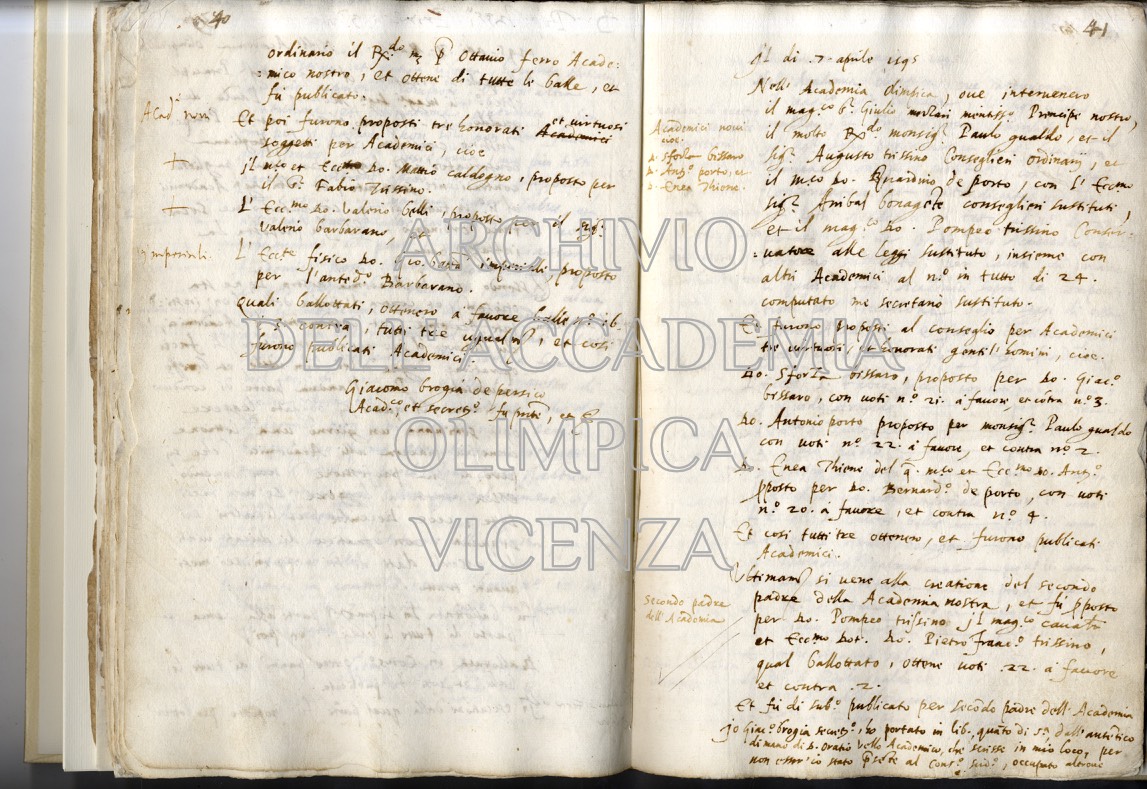 40
ordinario il R.do m. p Ottavio ferro Acade:
:mico nostro, et ottene di tutte le balle, et
fù publicato.
Acad.i novi
Et poi furono proposti tre honorati et virtuosi Academici
soggetti per Academici, cioe
jl m.co et Ecc.te Do. Mario caldogno, proposto per
il S.r Fabio Trissino.
L' Ecc.mo Do. Valerio balli, proposto per il Sig.r
Valerio barbarano, et
imperiali.
L' Ecc.te fisico Do. imperiali proposto
per l'anted.o Barbarano.
quali ballottati, ottenero à favore balle n.o 16.
contra, tutti tre ugualm.te, et cosi
furono publicati Academici.
Giacomo brogia de persico
Acad.co et secret.o
41
Jl di .7. aprile 1595
Nell' Academia olimpica, ove intervenero
il mag.co S.r Giulio Principe nostro,
il molto R.do monsig.r Paulo gualdo, et il
sig.r Augusto trissino Conseglieri ordinarij, et
il m.co Do. Bernardino de porto, con l' Ecc.mo
sig.r Anibal bonagēte conseglieri sustituti,
et il mag.co Do. Pompeo trissino Conser:
:vatore alle leggi sustituto, insieme con
altri Academici al n.o in tutto di 24.
computato me secretario sustituto.
Academici novi
cioe.
D. Sforza bissaro
D. Ant.o porto, et
D. Enea Thiene.
Et furono proposti al conseglio per Academici
tre virtuosi, et honorati gentil'homini, cioe.
Do. Sforza bissaro, proposto per Do. Giac.o
bissaro, con voti n.o 21. à favore, et cōtra n.o 3.
Do. Antonio porto proposto per monsig.r Paulo gualdo
con voti n.o 22. à favore, et contra n.o 2.
D. Enea Thiene del q. m.co et Ecc.mo Do. Ant.o
pposto per Do. Bernard.o de porto, con voti
n.o 20. à favore, et contra n.o 4.
Et cosi tutti tre ottenero, et furono publicati
Academici.
Secondo padre
dell'Academia
Ultimam.te si vene alla creatione del secondo
padre della Academia nostra, et fù pposto
per Do. Pompeo trissino jl mag.co cavall.r
et Ecc.mo Dot. Do. Pietro franc.o trissino,
qual ballottato, ottene voti .22. à favore
et contra .2.
Et fù di sub.o publicato per secōdo padre dell'Academia
jo Giac.o brogia secret.o, hò portato in lib. quāto di s.a dall'autētico
di mano di D. Oratio Vello Academico, che scrisse in mio loco, per
non esser io stato pñte al cons.o sud.o, occupato altrove
ARCHIVIO
DELL'ACCADEMIA
OLIMPICA
VICENZA